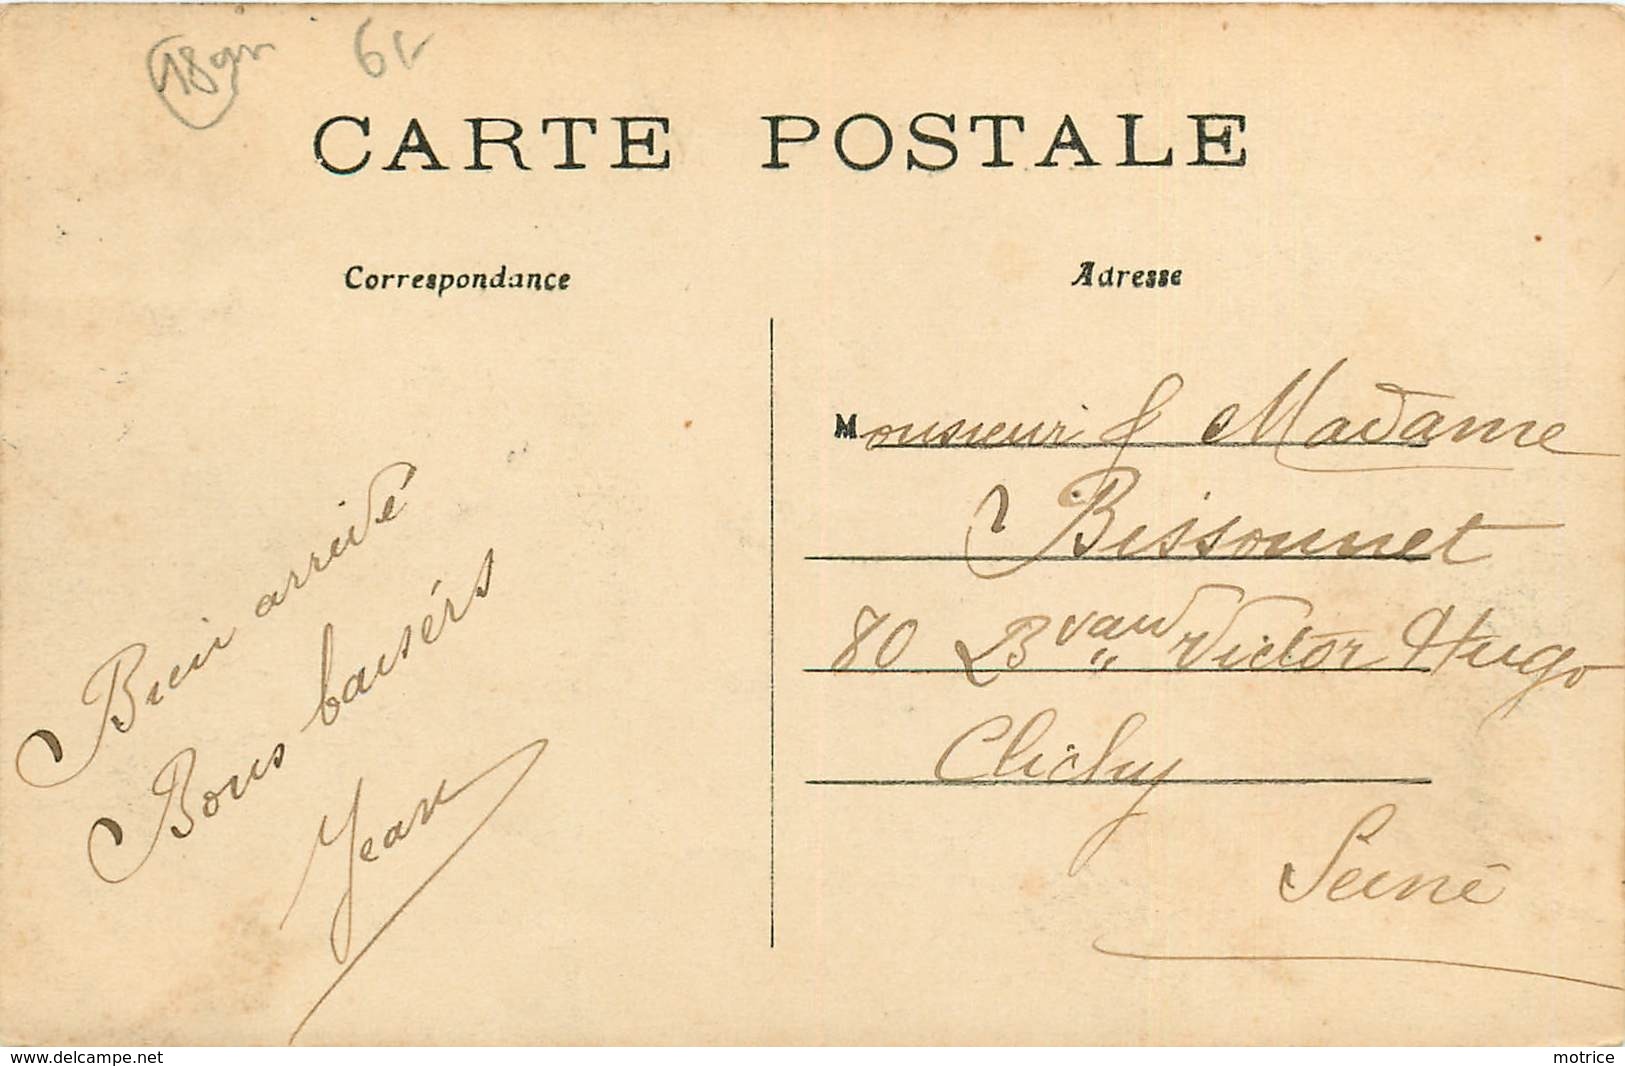 18gm 6
CARTE POSTALE
Correspondance
Bien arrivé
Bons baisérs
Jean
Adresse
Monsieur & Madame
Bissonnet
80 Bvard Victor Hugo
Clichy
Seine
www.delcampe.net
motrice